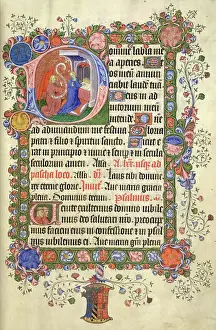 Domine labia me
a aperies. Et os
meum annun
ciabit laudē tuā
Deus in ad
iutorium meum
intende Domine
ad adiuuandum me festina Gloria
patri et filio et spiritui sancto. Sicut
erat in principio et nunc et semper et in
secula seculorum amen. Alla. A lxx. usqz ad
pascha loco. Alla. Laus tibi domi
ne rex eterne glorie. Inuit. Aue maria gracia
plena. Dominus tecum. Psalmus.
Uenite exultemus domino iubile
mus deo salutari nostro. preocupe
mus faciem eius in confessione et in psal
mis iubilemus ei. Aue maria gr̄a plen